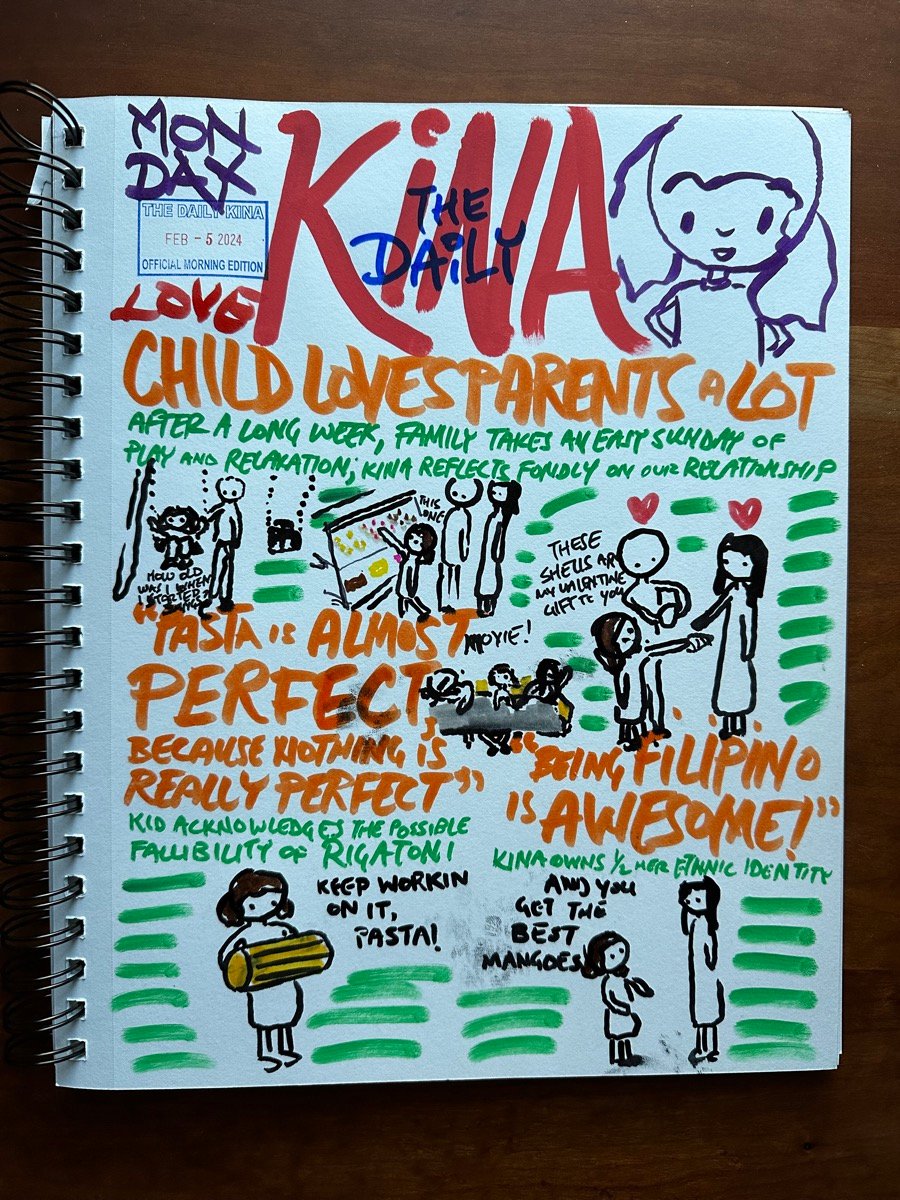 MON
DAY
THE DAILY KINA
FEB - 5 2024
OFFICIAL MORNING EDITION
LOVE
KiNA
THE
DAiLY
CHILD LOVES PARENTS A LOT
AFTER A LONG WEEK, FAMILY TAKES AN EASY SUNDAY OF
PLAY AND RELAXATION; KINA REFLECTS FONDLY ON OUR RELATIONSHIP
HOW OLD
WAS I WHEN
I STARTED
THIS
ONE
THESE
SHELLS AR
MY VALENTINE
GIFT TO YOU
"PASTA iS ALMOST
PERFECT,
BECAUSE NOTHING IS
REALLY PERFECT"
MOVIE!
KID ACKNOWLEDGES THE POSSIBLE
FALLIBILITY OF RIGATONI
"BEING FiLiPiNO
IS AWESOME!"
KINA OWNS 1/2 HER ETHNIC IDENTITY
KEEP WORKIN
ON IT,
PASTA!
AND YOU
GET THE
BEST
MANGOES